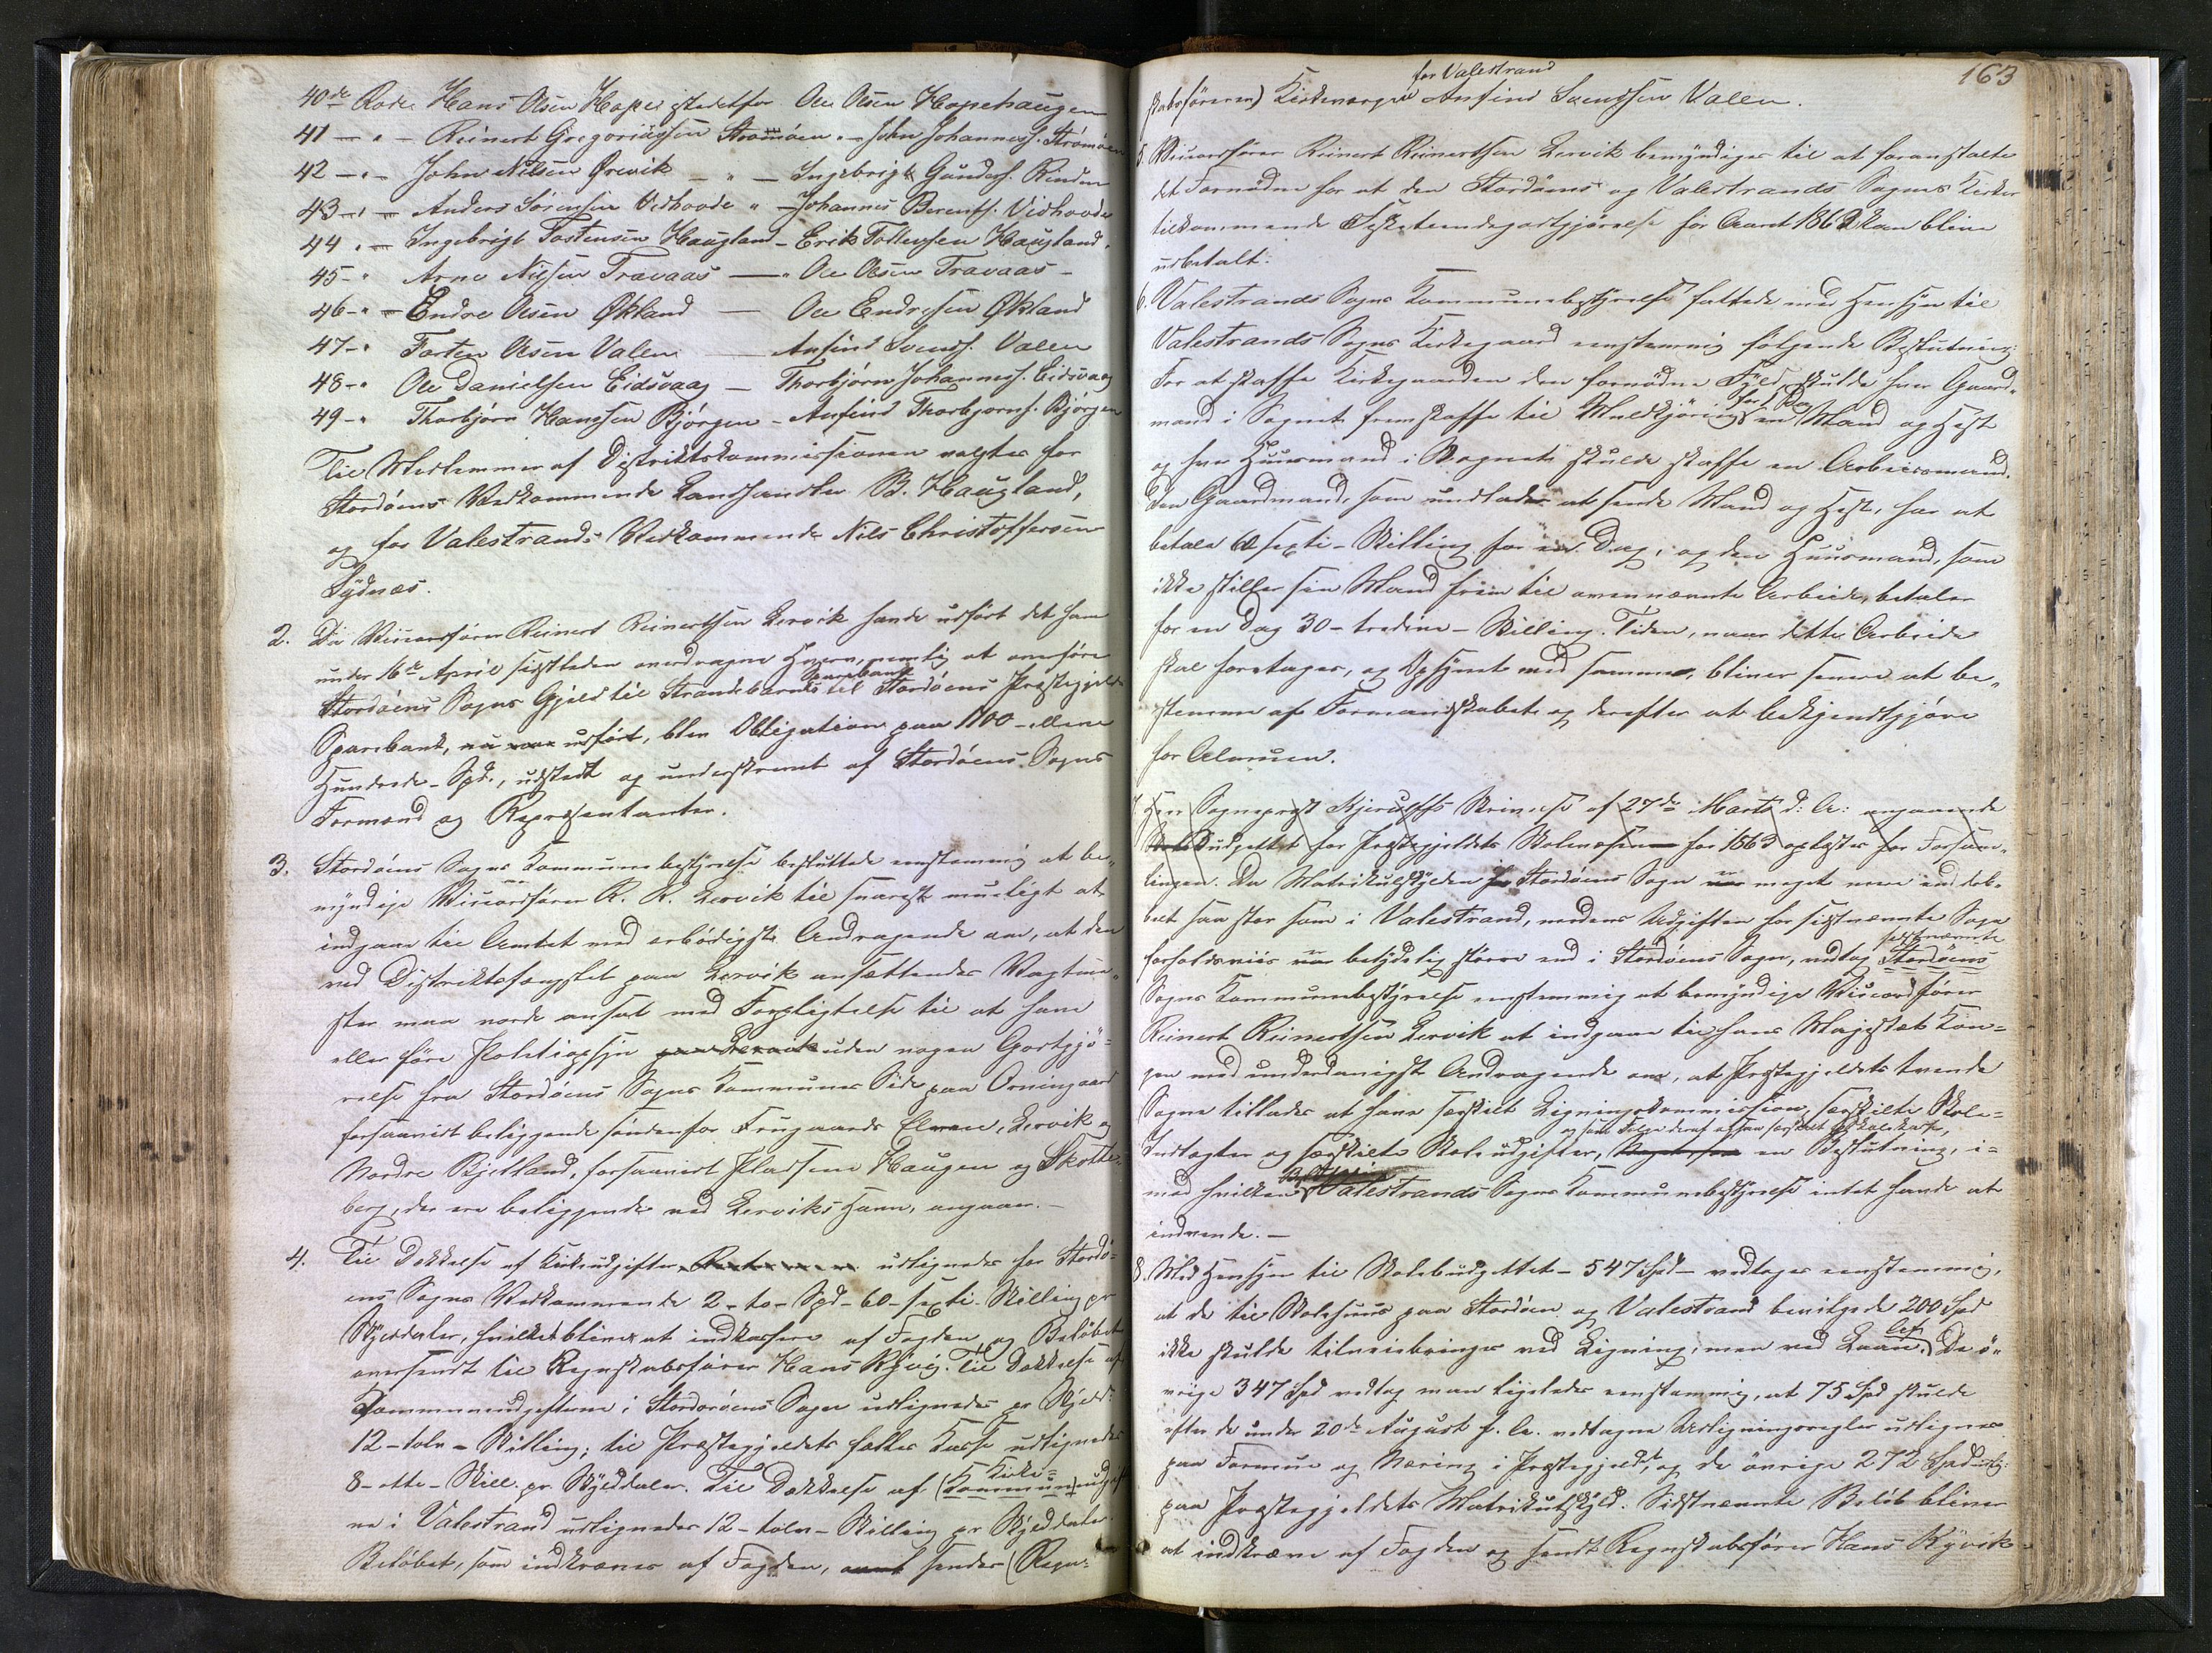 40de Rode Hans Olsen Hope istedetfor Ole Olsen Hopehaugen
41 – " – Reinert Gregoriussen Strømøen " – John Johanness. Strømøen
42 – " – John Nilsen Ørevik – " – Ingebrigt Gunders. Rinden
43 – " – Anders Sørensen Vidhovde " – Johannes Berents. Vidhovde
44 " – Ingebrigt Tostensen Haugland – Erik Tollevsen Haugland.
45 – " Arne Nilsen Travaas – " Ole Olsen Travaas –
46 – " – Endre Olsen Økland – Ole Endresen Økland
47 – " Torten Olsen Valen – Anfind Svends. Valen
48 – " Ole Danielsen Eidsvaag – Thorbjørn Johanness. Eidsvaag
49 – " Thorbjørn Hanssen Bjørgen – Anfind Thorbjørns. Bjørgen
Til Medlemmer af Distriktskommissionen valgtes for
Stordøens Vedkommende Landhandler B. Haugland,
og for Valestrands Vedkommende Nils Christoffersen
Sydnæs.
2. Da Viceordfører Reinert Reinertsen Lervik havde udført det ham
under 16de April sidstleden overdragne Hverv, nemlig at overføre
Stordøens Sogns Gjeld til Strandebarms Sparebank til Stordøens Præstegjelds
Sparebank, nu var udført, blev Obligation paa 1100 – elleve
Hundrede – Spd., udstedt og underskrevet af Stordøens Sogns
Formænd og Repræsentanter.
3. Stordøens Sogns Kommunebestyrelse besluttede eenstemmig at be-
myndige Viceordfører R. R. Lervik til snarest mueligt at
indgaae til Amtet med ærbødigste Andragende om, at den
ved Distriktsfængslet paa Lervik ansættendes Vagtme-
ster maa vorde ansat med Forpligtelse til at have
eller føre Politiopsyn paa Lervik uden nogen Godtgjø-
relse fra Stordøens Sogns Kommunes Side paa
forsaavidt beliggende søndenfor Frugaards Elven, Lervik og
Nordre Bjelland, forsaavidt Pladsene Haugen og Skotte-
berg, der ere beliggende ved Lerviks Havn, angaaer. –
4. Til Dækkelse af Kirkeudgifter udlignedes for Stordø-
ens Sogns Vedkommende 2 – to – Spd – 60 – sexti – Skilling pr
Skylddaler, hvilket bliver at indkassere af Fogden og Beløbet
oversendt til Regnskabsfører Hans Kyvig. Til Dækkelse af
Kommuneudgifterne i Stordøens Sogn udlignedes pr Skyldd.
12 – tolv – Skilling; til Præstegjeldets fælles Kasse udlignedes
8 – otte – Skill. pr. Skylddaler. Til Dækkelse af (Kommune) Kirke= udgifter-
ne i Valestrand udlignedes 12 – tolv – Skilling pr Skylddaler.
Beløbet, som indkræves af Fogden, samt sendes (Regn-
163
skabsføreren) Kirkeværgen for Valestrand Anfind Svendsen Valen.
5. Viceordfører Reinert Reinertsen Lervik bemyndiges til at foranstalte
det Fornødne for at den Stordøens og Valestrands Sognes Kirker
tilkommende Fisketiendegodtgjørelse for Aaret 1862 kan blive
udbetalt.
6. Valestrands Sogns Kommunebestyrelse fattede med Hensyn til
Valestrands Sogns Kirkegaard eenstemmig følgende Beslutning:
For at skaffe Kirkegaarden den fornødne Fyld, skulde hver Gaard-
mand i Sognet fremskaffe til Muldkjøring for 1 Dag een Mand og Hest
og hver Huusmand i Sognet skulde skaffe en Arbeidsmand.
Den Gaardmand, som undlader at sende Mand og Hest, har at
betale 60 sexti – Skilling for een Dag, og den Huusmand, som
ikke stiller sin Mand frem til ovennævnte Arbeide, betaler
for en Dag 30 – tredive – Skilling. Tiden, naar dette Arbeide
skal foretages, og Opsynet med samme, bliver senere at be-
stemme af Formandskabet og derefter at bekjendtgjøre
for Almuen.
7. Herr Sognepræst Kjerulffs Skrivelse af 27de Marts d. A. angaaende
Skolebudgettet for Præstegjeldets Skolevæsen for 1863 oplæstes for Forsam-
lingen. Da Matrikulskylden for Stordøens Sogn er meget mere end dob-
belt saa stor som i Valestrand, medens Udgifter for sidstnævnte Sogn
forholdsviis er betydelig større end i Stordøens Sogn, vedtog sidstnævnte Stordøens
Sogns Kommunebestyrelse eenstemmig at bemyndige Viceordfører
Reinert Reinertsen Lervik at indgaae til Hans Majestæt Kon-
gen med underdanigst Andragende om, at Præstegjeldets tvende
Sogne tillades at have særskilt Ligningskommission, særskilte Skole-
Indtægter og særskilte Skoleudgifter, og som Følge deraf ogsaa særskilt Skolekasse, en Beslutning, i-
mod hvilken Valestrands Sogns Kommunebestyrelse intet havde at
indvende. –
8. Med Hensyn til Skolebudgettet – 547 Spd – vedtoges eenstemmig,
at de til Skolehuus paa Stordøen og Valestrand bevilgede 200 Spd
ikke skulde tilveiebringes ved Ligning, men ved Laan. De ø-
vrige 347 Spd vedtog man ligeledes eenstemmig, at 75 Spd skulde
efter de under 20de August f. A. vedtagne Udligningsregler udlignes
paa Formue og Næring i Præstegjeldet, og de øvrige 272 Spd
paa Præstegjeldets Matrikulskyld. Sidstnævnte Beløb bliver
at indkræve af Fogden og sendt Regnskabsfører Hans Kyvik